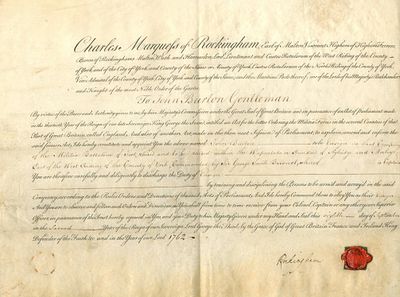 Charles Marquess of Rockingham, Earl of Malton, Viscount Higham of Higham Ferrers,
Baron of Rockingham, Malton, Wath, and Harrowden, Lord Lieutenant and Custos Rotulorum of the West Riding of the County
of York, and of the City of York, and County of the same Custos Rotulorum of the North Riding of the County of York,
Vice Admiral of the County of York, City of York, and County of the same, and the Maritime Parts thereof, one of the Lords of his Majesty's Bedchamber,
and Knight of the most Noble Order of the Garter
To John Burton Gentleman
By virtue of the Power and Authority to me by his Majesty's Commission under the Great Seal of Great Britain and in pursuance of an Act of Parliament made
in the thirtieth Year of the Reign of our late Sovereign King George the Second entitled an Act for the better Ordering the Militia Forces in the several Counties of that
Part of Great Britain called England, And also of another Act made in the then next Session of Parliament, to explain, amend and enforce the
said former Act, I do hereby constitute and appoint You the above named John Burton to be Ensign in that Company
of the Militia
East of the West Riding of the County of York Commanded by Sir George Savile Baronet
You are therefore carefully and diligently to discharge the Duty of Ensign
by training and disciplining the Persons to be armed and arrayed in the said
Company according to the Rules Orders and Directions of the said Acts of Parliament, And I do hereby Command them to obey You as their Ensign
And You are to observe and follow such Orders and Directions as You shall from time to time receive from your Colonel, Captain or any other your Superior
Officer, in pursuance of the trust hereby reposed in You and your Duty to his Majesty Given under my Hand and Seal this day of September
in the Second Year of the Reign of our Sovereign Lord George the Third, by the Grace of God of Great Britain France and Ireland King
Defender of the Faith &c and in the Year of our Lord 1762
Rockingham